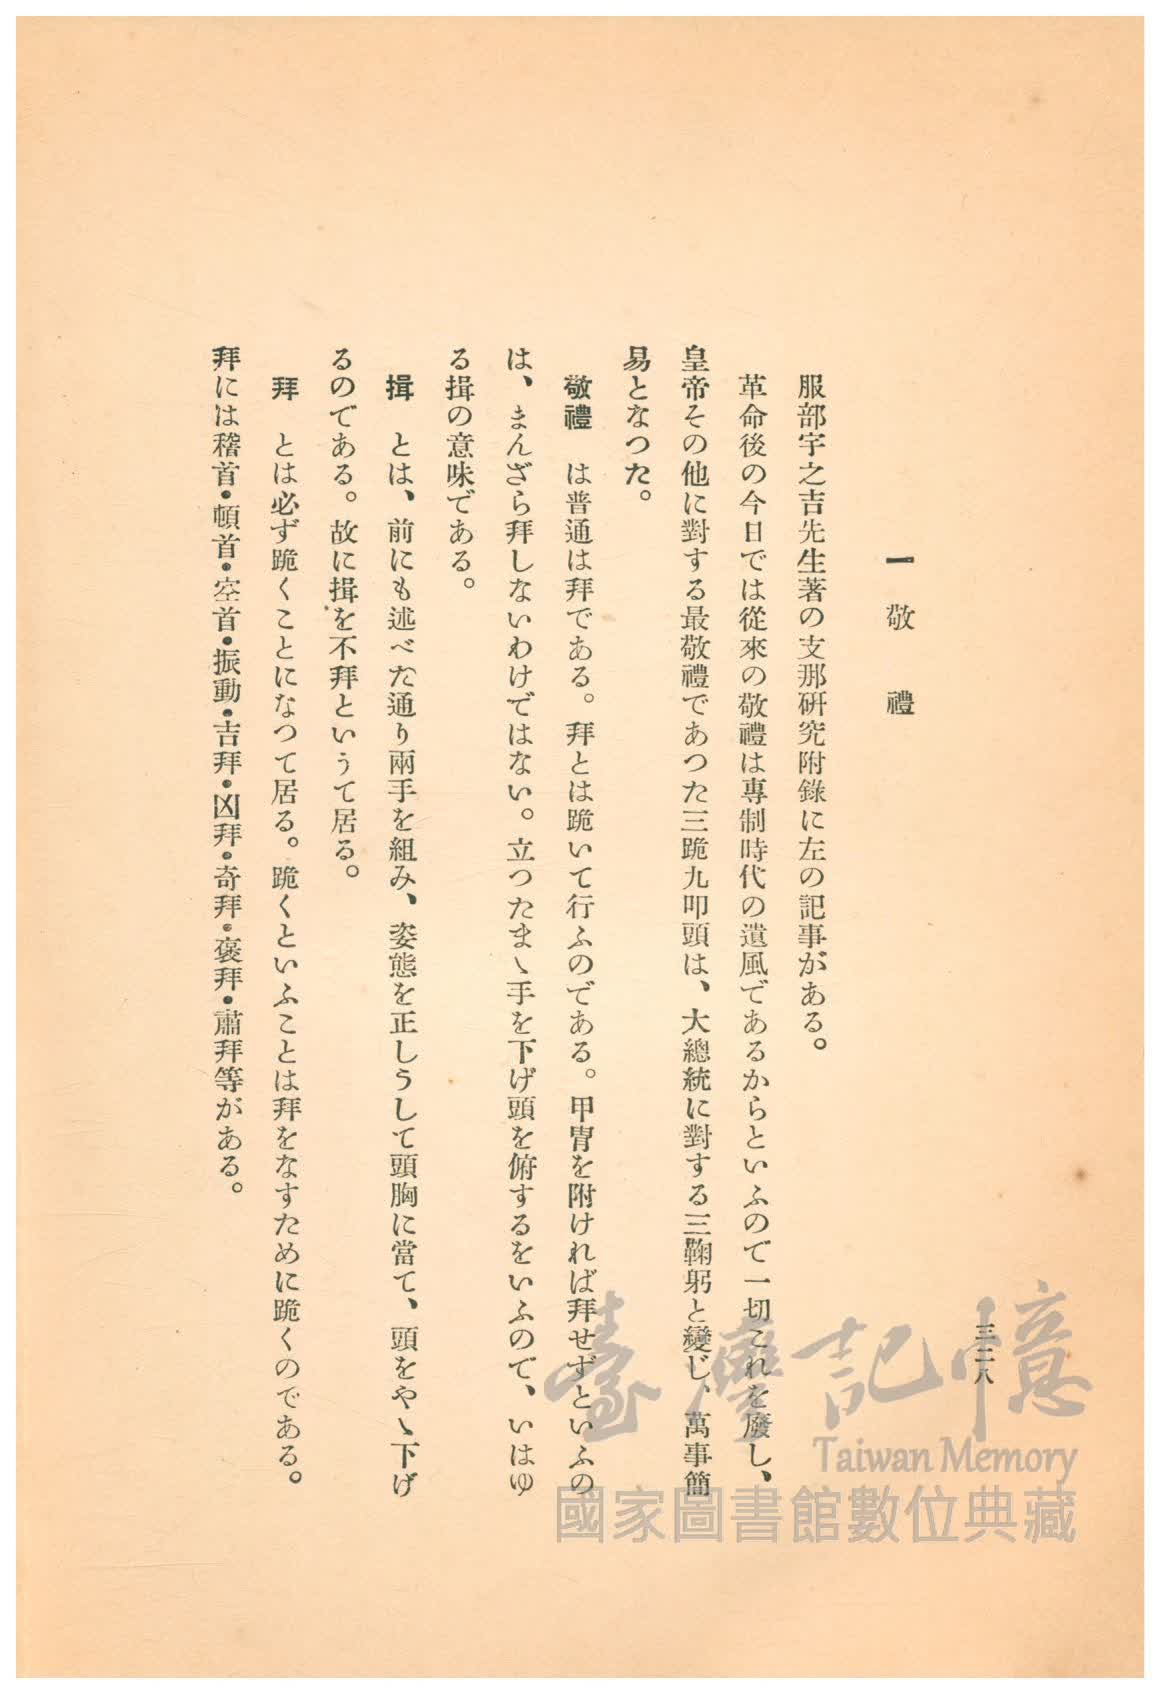 三二八
一 敬 禮
服部宇之吉先生著の支那硏究附錄に左の記事がある。
革命後の今日では從來の敬禮は專制時代の遺風であるからといふので一切これを廢し、
皇帝その他に對する最敬禮であつた三跪九叩頭は、大總統に對する三鞠躬と變じ、萬事簡
易となつた。
敬禮 は普通は拜である。拜とは跪いて行ふのである。甲冑を附ければ拜せずといふの
は、まんざら拜しないわけではない。立つたまゝ手を下げ頭を俯するをいふので、いはゆ
る揖の意味である。
揖 とは、前にも述べた通り兩手を組み、姿態を正しうして頭胸に當て、頭をやゝ下げ
るのである。故に揖を不拜というて居る。
拜 とは必ず跪くことになつて居る。跪くといふことは拜をなすために跪くのである。
拜には稽首・頓首・空首・振動・吉拜・凶拜・奇拜・褒拜・肅拜等がある。
臺灣記憶
Taiwan Memory
國家圖書館數位典藏